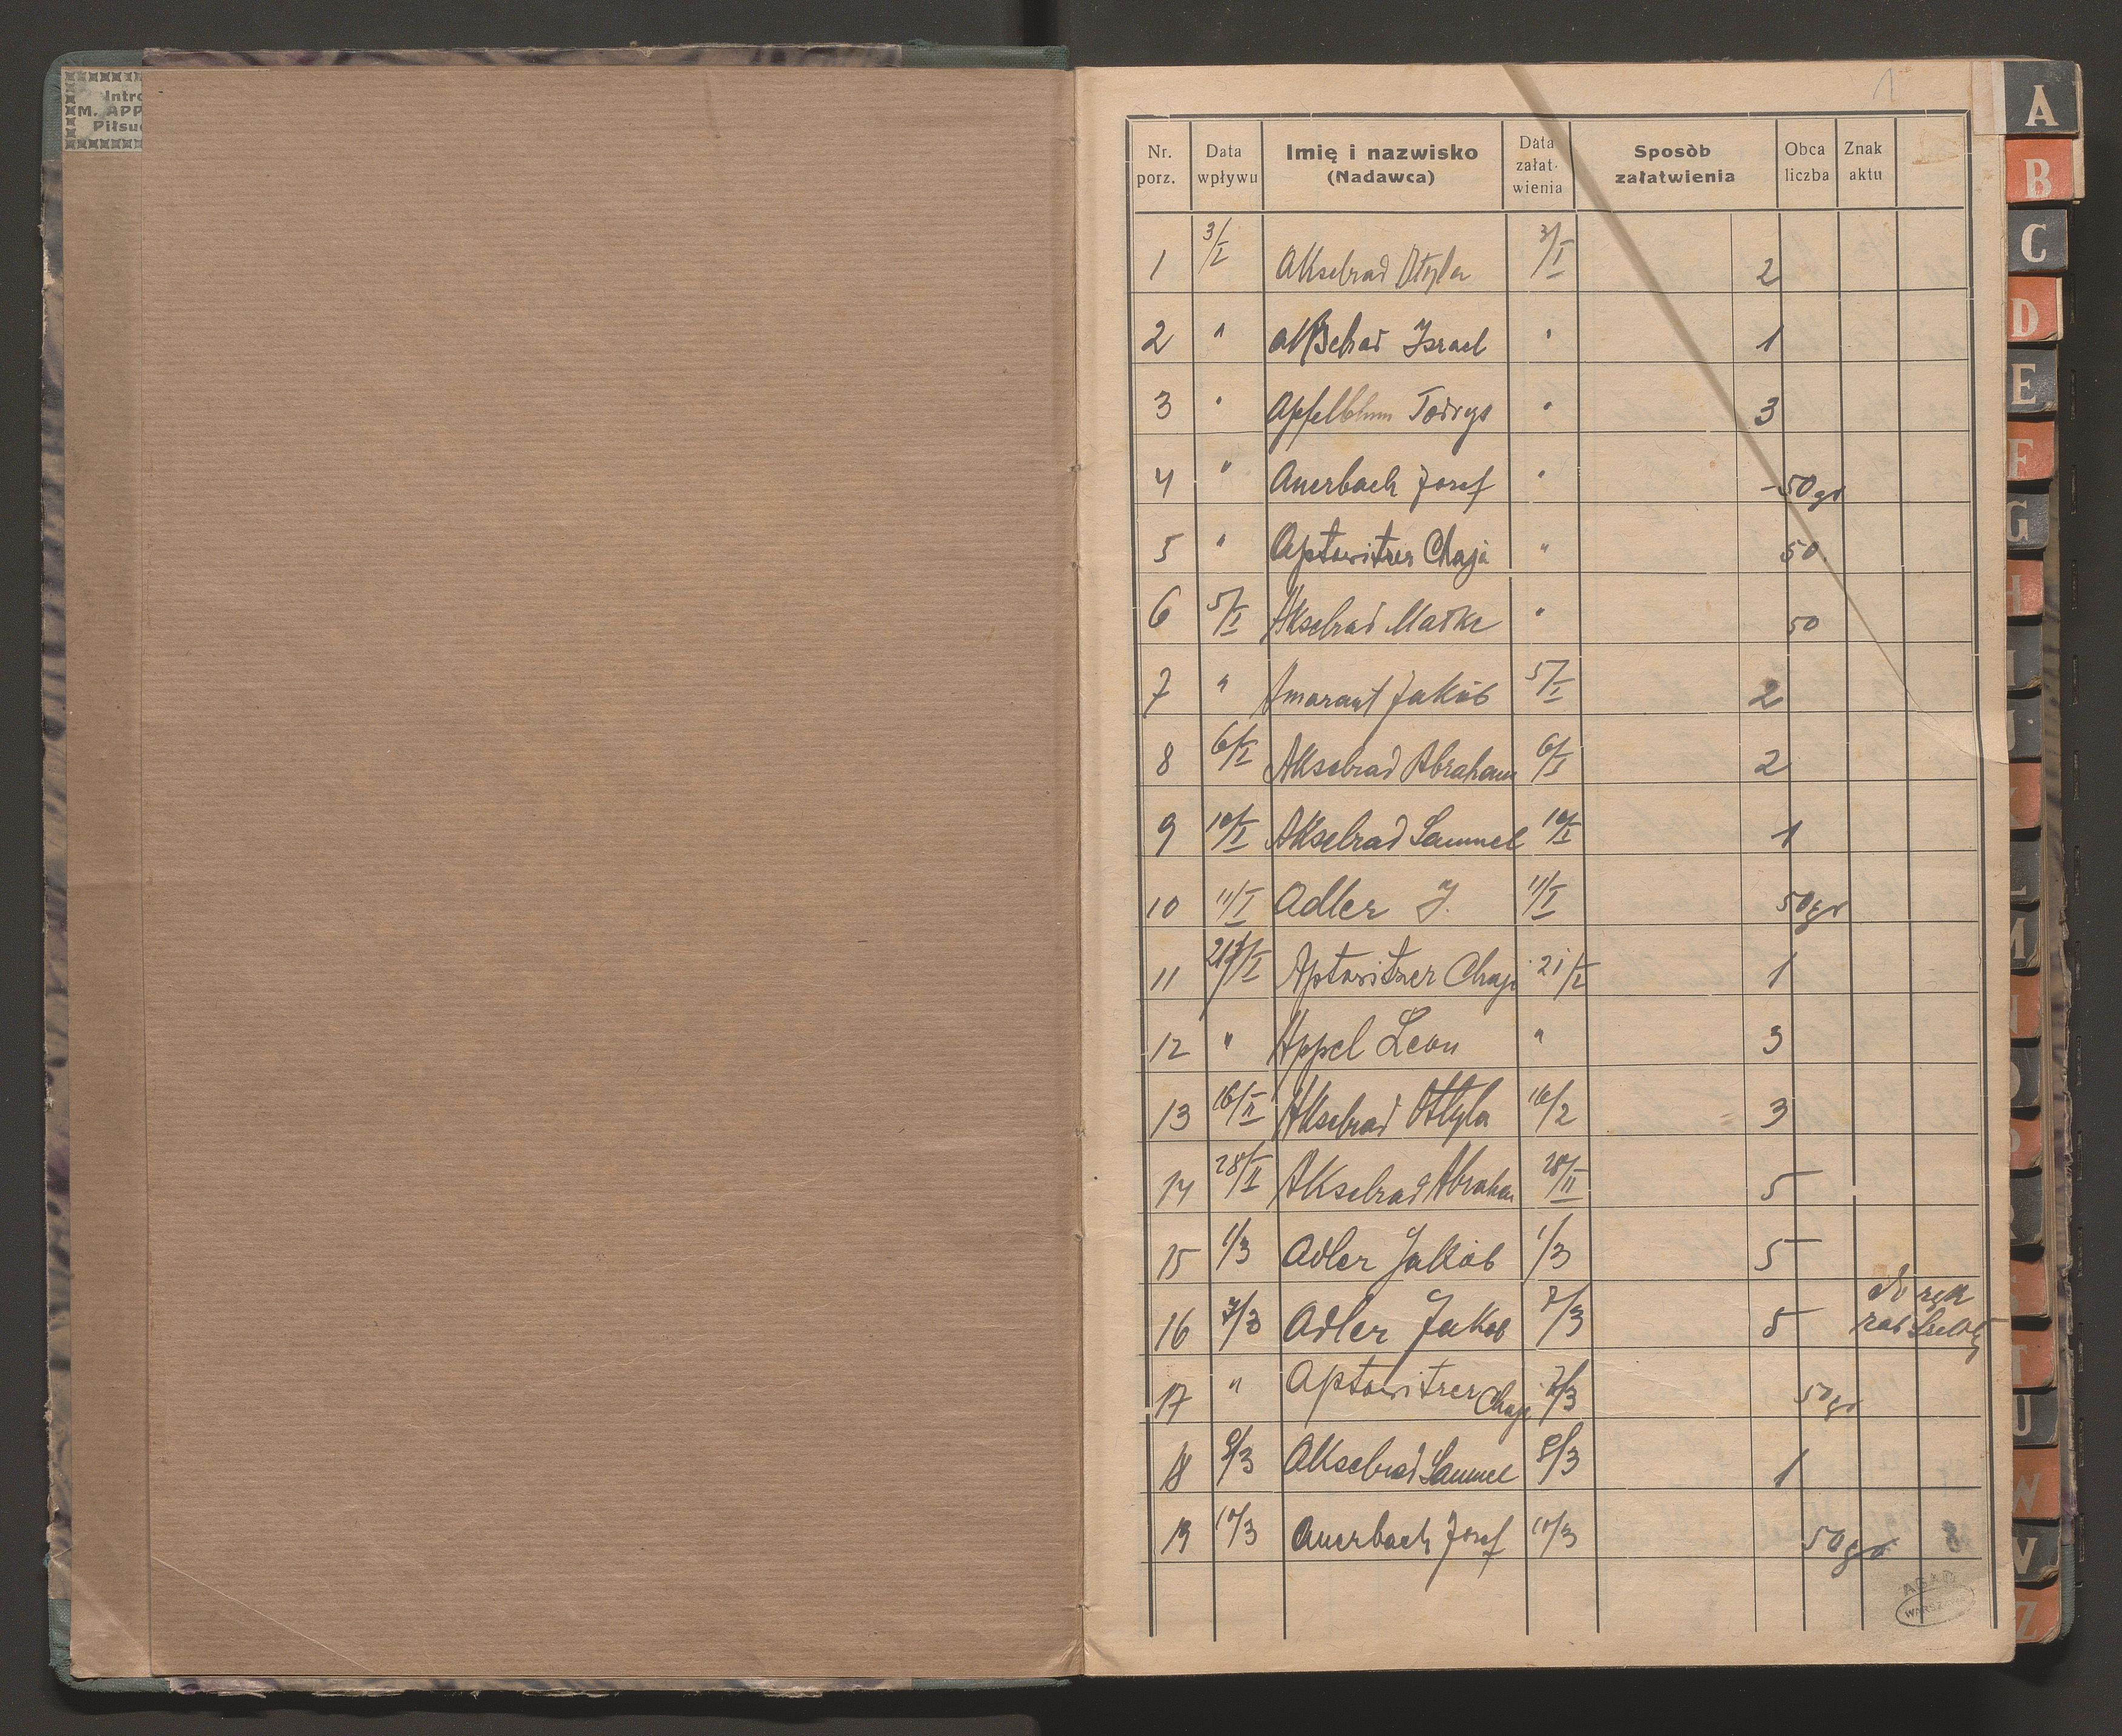 Intro
M. APP
Piłsu
1
Nr. porz. Data wpływu Imię i nazwisko (Nadawca) Data załat-wienia Sposòb załatwienia Obca liczba Znak aktu
1 3/I Akselrad Otyla 3/I 2
2 " Akselrad Israel " 1
3 " Apfelblum Todrys " 3
4 " Auerbach Josef " -50 gr
5 " Aptowitzer Chaja " 50
6 5/I Akselrad Matke " 50
7 " Amarant Jakób 5/I 2
8 6/I Akselrad Abraham 6/I 2
9 10/I Akselrad Samuel 10/I 1
10 11/I Adler J. 11/I 50 gr
11 21/I Aptowitzer Chaje 21/I 1
12 " Appel Leon " 3
13 16/II Akselrad Ottyla 16/2 3
14 28/II Akselrad Abraham 28/II 5
15 1/3 Adler Jakób 1/3 5
16 7/3 Adler Jakob 7/3 5 do rąk rab
17 " Aptowitzer Chaje 7/3 50 gr
18 8/3 Akselrad Samuel 8/3 1
19 10/3 Auerbach Josef 10/3 50 gr
AGAD
WARSZAWA
A
B
C
D
E
F
G
H
I
J
K
L
M
N
O
P
R
S
T
U
W
V
Z